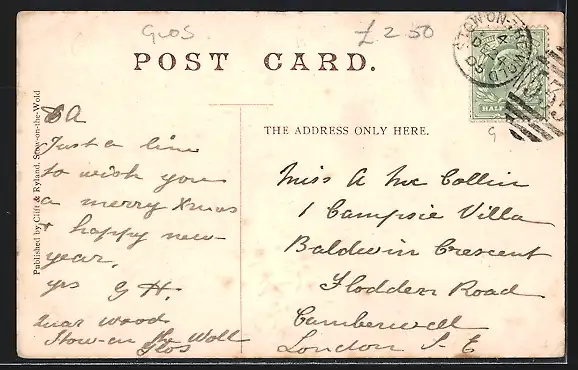 Glos
£2.50
POST CARD.
STOW-ON-THE-WOLD
HALF
Published by Clift & Ryland, Stow-on-the-Wold
THE ADDRESS ONLY HERE.
D A
Just a line
to wish you
a merry Xmas
& happy new
year.
yrs G H.
wood
Stow-on the Wold
Glos
Miss A Mc Collin
1 Campsie Villa
Baldwin Crescent
Flodden Road
Camberwell
London S. E